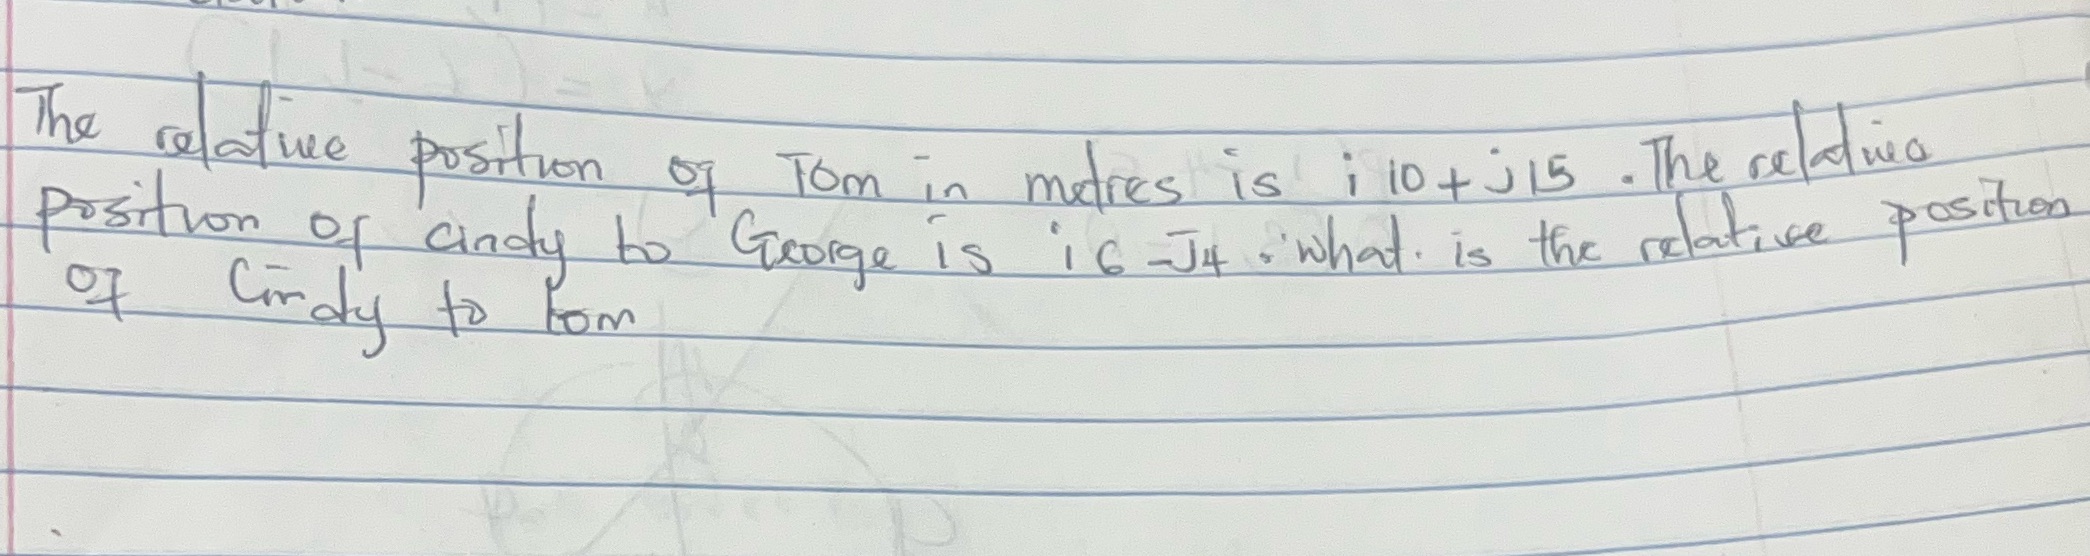 The relative position of Tom in metres is i10 + j15. The relative
position of cindy to George is i6 - J4. what. is the relative position
of Cindy to Tom